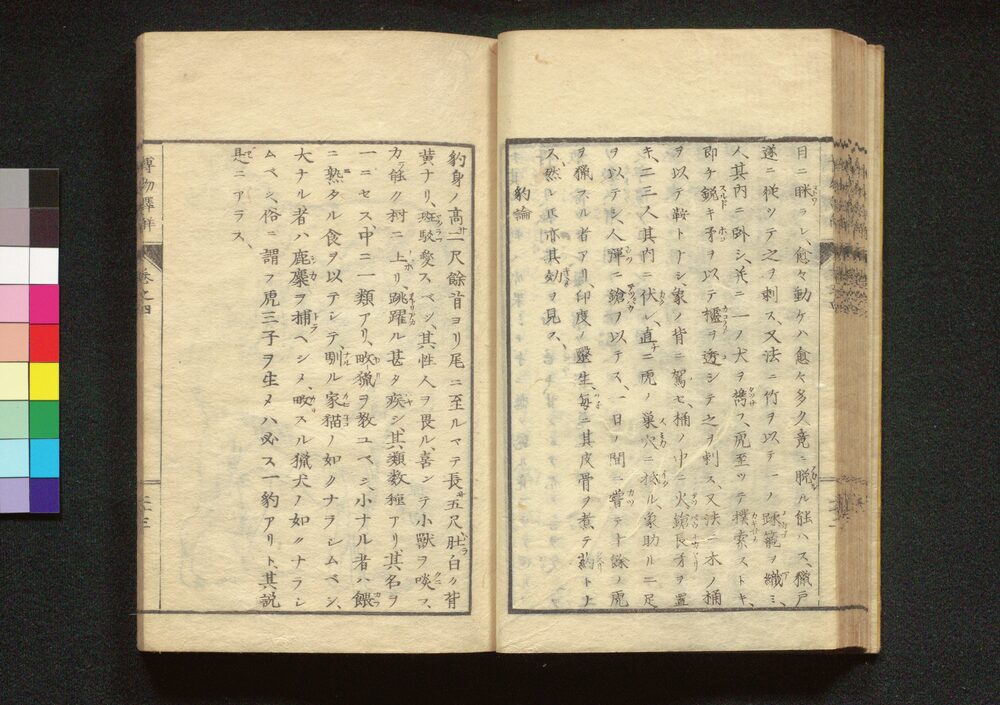 目ニ眯ラレ、愈々動ケハ愈々多ク竟ニ脱ル能ハス、獵戸
遂ニ従ツテ之ヲ刺ス、又法ニ竹ヲ以テ一ノ踈籠ヲ織ミ、
人其内ニ卧シ、并ニ一ノ犬ヲ携フ、虎至ツテ撲索ストキ、
即ケ鋭キ矛ヲ以テ櫳ヲ透シテ之ヲ刺ス、又法ニ木ノ桶
ヲ以テ鞍トナシ、象ノ背ニ駕セ、桶ノ中ニ火鎗長矛ヲ置
キ、二三人其内ニ伏シ、直ニ虎ノ巣穴ニ抵ル、象助ルニ足
ヲ以テシ、人殫ニ鎗ヲ以テス、一日ノ間ニ嘗テ十餘ノ虎
ヲ獵スル者アリ、印度ノ醫生、毎ニ其皮骨ヲ煮テ藥トナ
ス、然レ𪜈亦其効ヲ見ス、
豹論
豹身ノ高サ二尺餘首ヨリ尾ニ至ルマテ長サ五尺、肚白ク背
黄ナリ、斑駁愛スベシ、其性人ヲ畏ル、喜ンテ小獸ヲ啖フ、
力能ク樹ニ上リ、跳躍ル甚タ疾シ、其類数種アリ、其名ヲ
一ニセス、中ニ一類アリ、畋獵ヲ教ユベシ、小ナル者ハ餵
ニ熟タル食ヲ以テシテ、馴ル家猫ノ如クナラシムベシ、
大ナル者ハ鹿麋ヲ捕ヘシメ、畋スル獵犬ノ如クナラシ
ムベシ、俗ニ謂フ虎三子ヲ生メハ必ス一豹アリト、其説
是ニアラス、
博物
巻之四